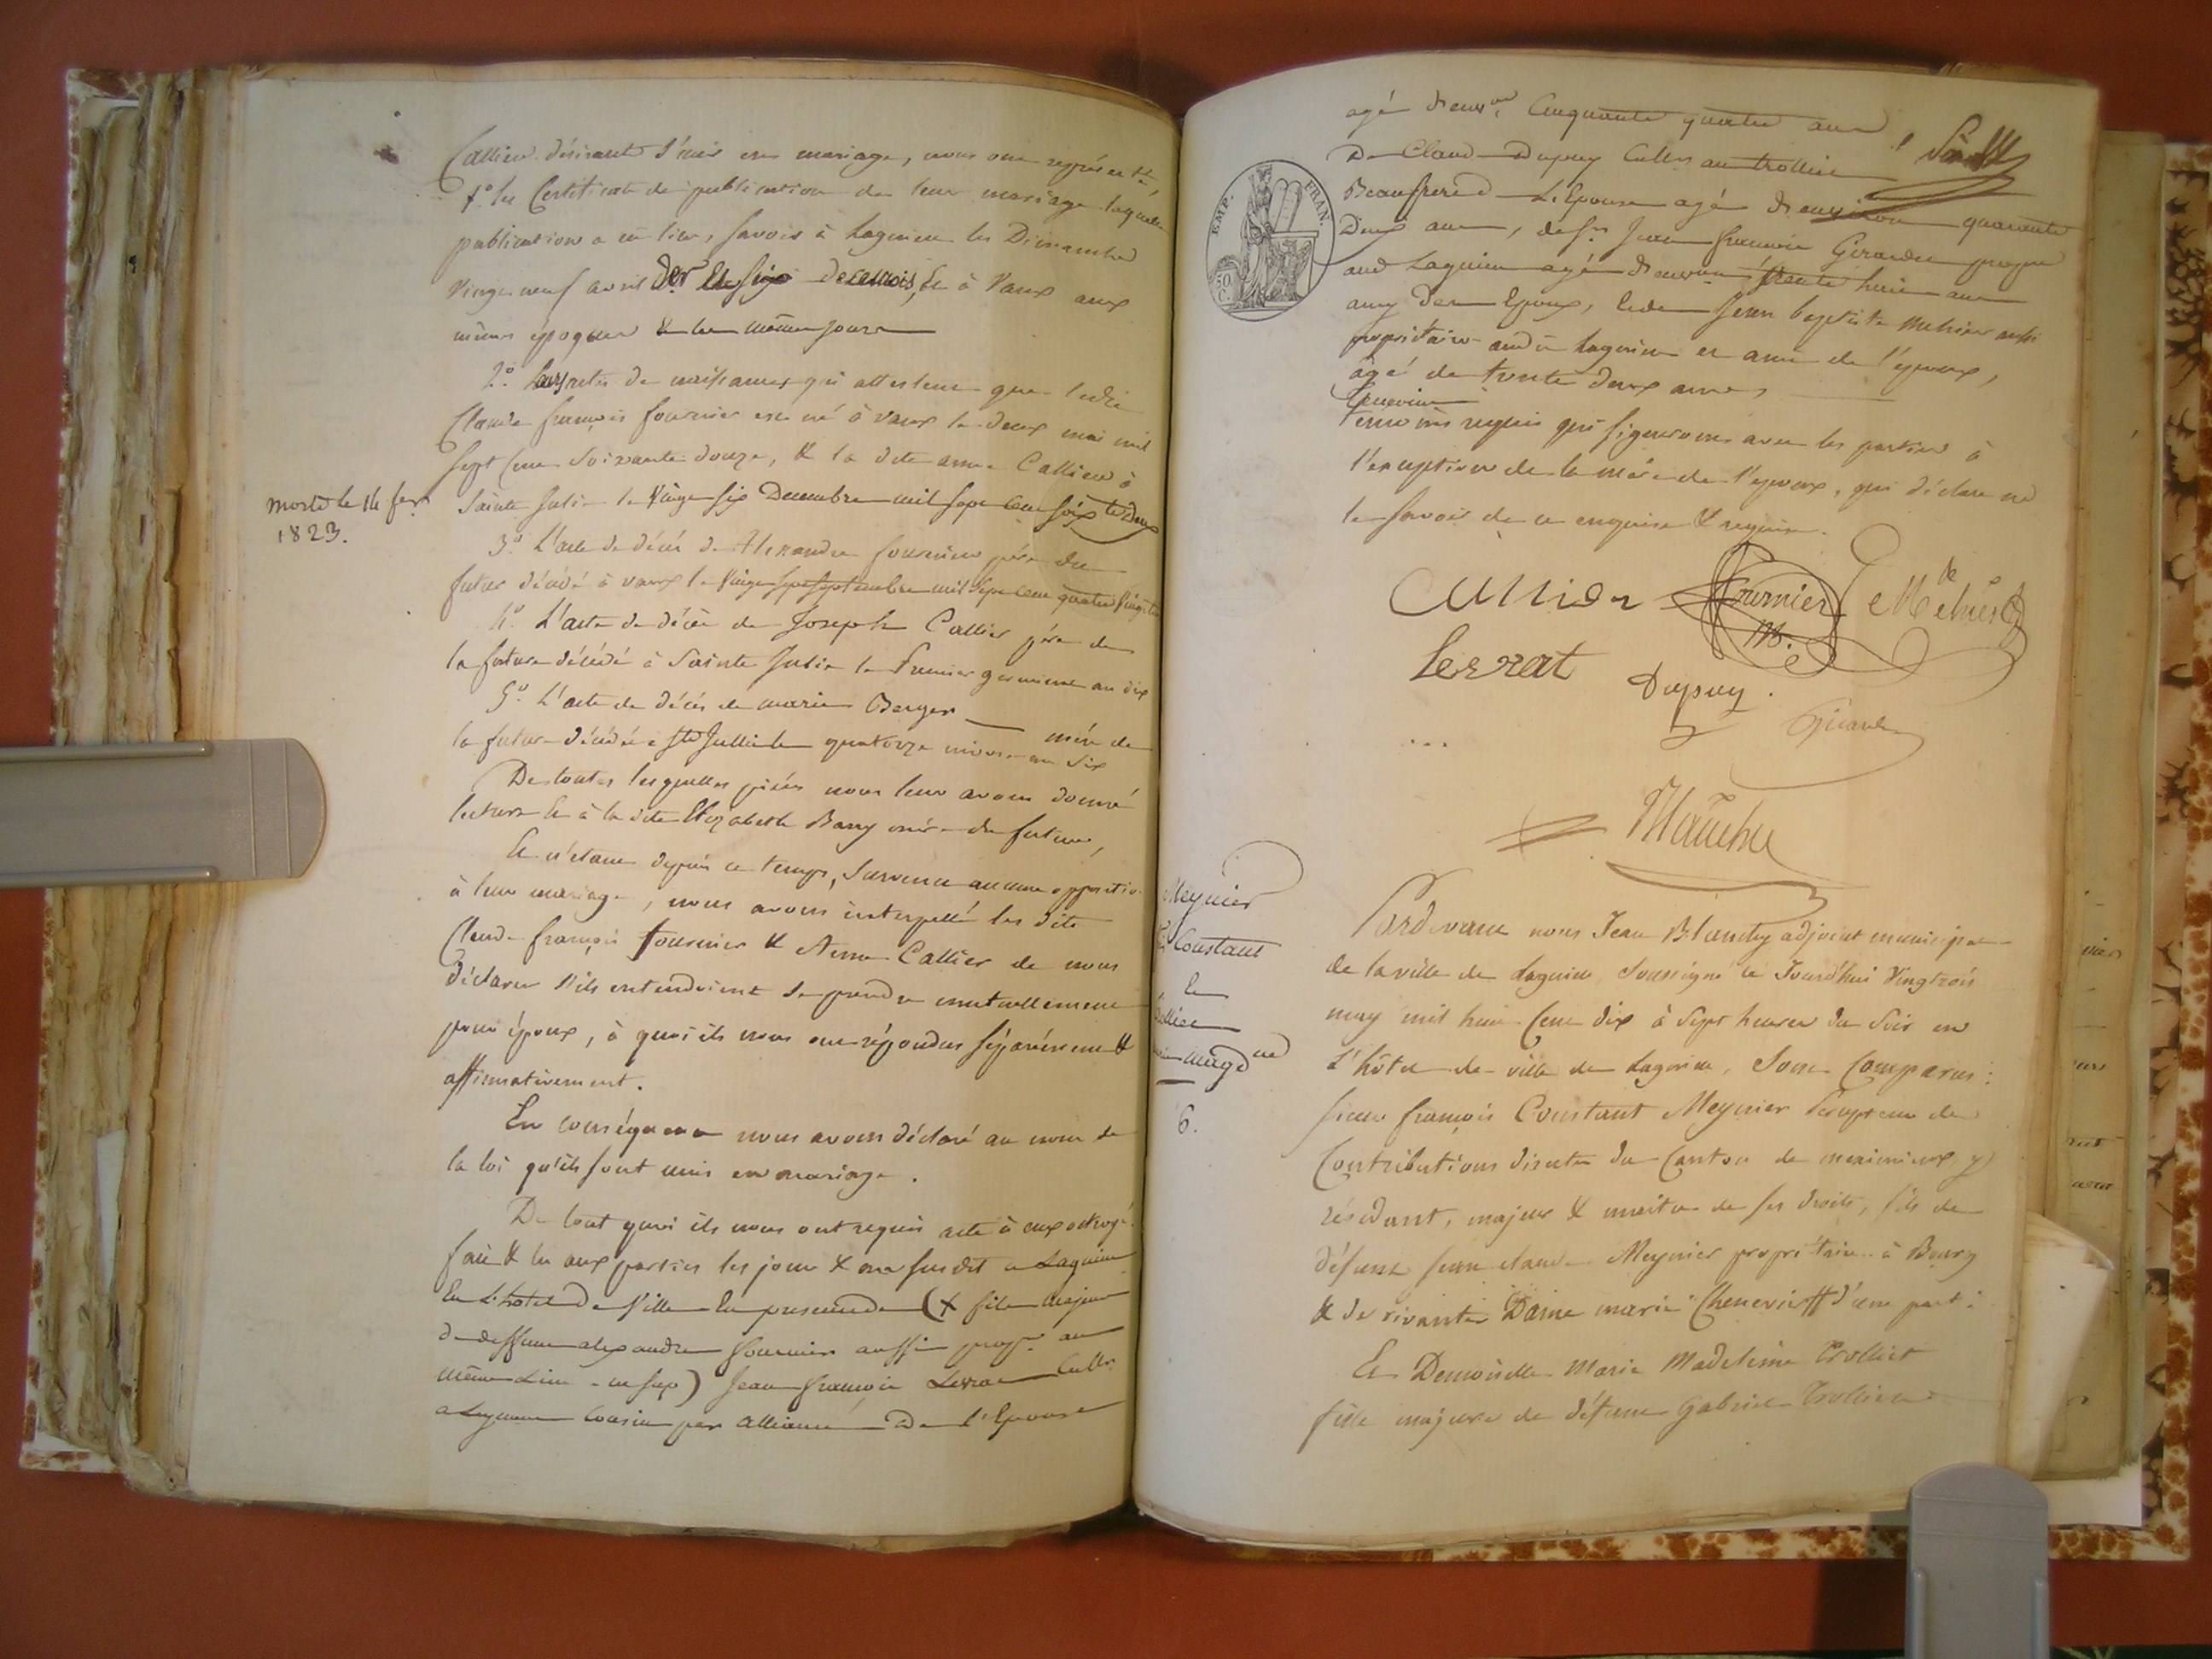 Callier désirants s'unir en mariage, nous ont représenté,
1º. les Certificats de publication de leur mariage laquelle
publication a eu lieu, savoir à Lagnieu les Dimanches
vingt neuf avril der. Et six de ce mois, Et à Vaux aux
mêmes époques & les mêmes jours
2º. Les actes de naissances qui attestent que ledit
Claude françois fournier est né à vaux le deux mai mil
sept cent soixante douze, & la dite anne Callier à
Sainte Julie le vingt six Decembre mil sept cent soixte deux
morte le 14 fer.
1823.
3º. L'acte de décès de Alexandre fournier père du
futur décédé à vaux le vingt sept septembre mil sept cent quatre vingt
4º. L'acte de décès de Joseph Callier père de
la future décédé à Sainte Julie le Premier germinal an dix
5º. L'acte de décès de marie Berger mère de
la future décédée a Ste Julie le quatorze nivose an six
De toutes lesquelles pièces nous leur avons donné
lecture Et à la dite Elizabeth Bary mère du futur,
Et n'étant depuis ce temps, survenu aucune oppositio
à leur mariage, nous avons interpellé les dits
Claude françois fournier & Anne Callier de nous
déclarer s'ils entendoient se prendre mutuellement
pour époux, à quoi ils nous ont répondus séparément &
affirmativement.
En conséquence nous avons déclaré au nom de
la loi qu'ils sont unis en mariage.
De tout quoi ils nous ont requis acte à eux octroyé.
fait & lu aux parties les jour & an susdit a Lagnieu
En L'hotel de Ville En presence de (x fils majeur
de deffunt alexandre fournier aussi propre. au
même Lieu) Jean françois Lerrat Cultr.
a Lagnieu Cousin par alliance De L'Epouse
agé d'envon. Cinquante quatre ans
De Claude Dupuy Cultr au trollier
Beaufrere de L'Epouse agé d'environ quarante
Deux ans, de sr. Jean francois Girardet propre
aud Lagnieu agé d'environ trente huit ans
amy des Epoux, & de Jean baptiste aussi
propriétaire aud Lagnieu et ami de l'époux,
âgé de trente deux ans,
témoins requis qui signeront avec les parties à
l'exception de la mère de l'époux, qui déclare ne
le savoir de ce enquise & requise.
Callier Fournier
Lerrat Dupuy.
Blanchy
Meynier
Constant
Et
Trollier
magdne
6.
Pardevant nous Jean Blanchy adjoint municipal
de la ville de Lagnieu, soussigné ce Jourd'hui vingtrois
may mil huit Cent dix à sept heures du soir en
L'hôtel de ville de Lagnieu, Sont Comparus:
sieur françois Constant Meynier Percepteur des
Contributions directes du Canton de meximieux, y
résidant, majeur & maître de ses droits, fils de
défunt jean claude Meynier propriétaire à Bourg
& de vivante Dame marie Chenevier d'une part:
Et Demoiselle Marie Madeleine Trollier
fille majeure de défunt Gabriel Trollier
EMP. FRAN.
50 C.